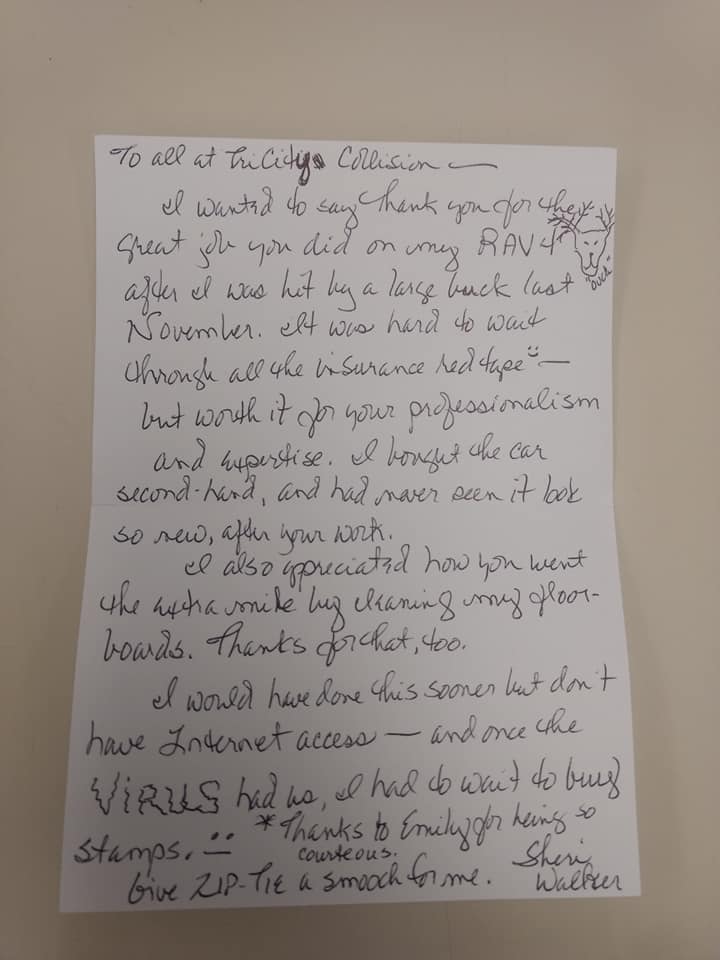 To all at TriCity Collision —
I wanted to say Thank you for the
great job you did on my RAV 4
"ouch"
after I was hit by a large buck last
November. It was hard to wait
through all the insurance red tape —
but worth it for your professionalism
and expertise. I bought the car
second-hand, and had never seen it look
so new, after your work.
I also appreciated how you went
the extra mile by cleaning my floor-
boards. Thanks for that, too.
I would have done this sooner but don't
have Internet access — and once the
VIRUS had us, I had to wait to buy
stamps.
*Thanks to Emily for being so
courteous.
Give ZIP-TIE a smooch for me.
Sheri
Walker